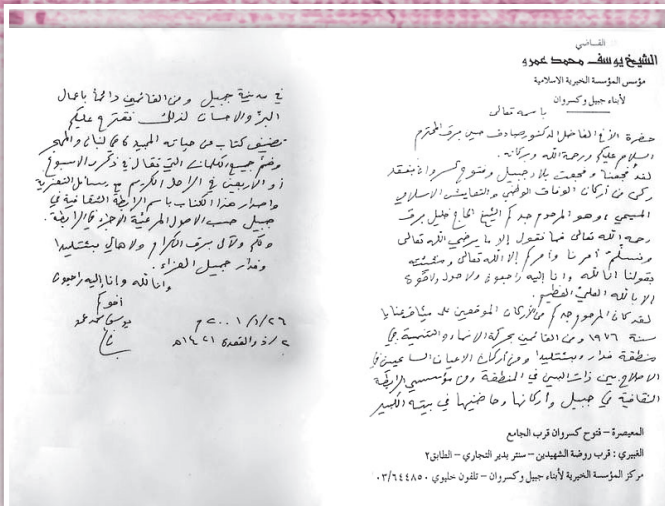 القاضي
الشيخ يوسف محمد عمرو
مؤسس المؤسسة الخيرية الاسلامية
لأبناء جبيل وكسروان
باسمه تعالى
حضرة الأخ الفاضل الدكتور صادق حسن برق المحترم
السلام عليكم ورحمة الله وبركاته.
لقد فجعنا وفجعت بلاد جبيل وفتوح كسروان بفقد
ركن من أركان الوفاق الوطني والتعايش الاسلامي
المسيحي، وهو المرحوم جدكم الشيخ الحاج خليل برق
رحمه الله تعالى فما نقول إلا ما يرضي الله تعالى
ونسلّم أمرنا وأمركم إلى الله تعالى ومشيئته
بقولنا انا لله وانا إليه راجعون ولا حول ولا قوة
الا بالله العليّ العظيم.
لقد كان المرحوم جدكم من الأركان الموقعين على ميثاق عنايا
سنة ١٩٧٦ ومن القائمين بحركة الانماء والتنمية في
منطقة فدار وبشتليدا ومن أركان الاعيان الساعين في
الاصلاح بين ذات البين في المنطقة ومن مؤسسي الرابطة
الثقافية في جبيل وأركانها وحاضنيها في بيته الكبير
المعيصرة – فتوح كسروان قرب الجامع
الغبيري : قرب روضة الشهيدين – سنتر بدير التجاري – الطابق٢
مركز المؤسسة الخيرية لأبناء جبيل وكسروان – تلفون خليوي ٠٣/٦٤٤٨٥٠
في مدينة جبيل ومن القائمين دائماً باعمال
البرّ والاحسان لذلك نقترح عليكم
تصنيف كتاب عن حياته المجيدة في لبنان والمهجر
وضمّ جميع الكلمات التي تقال في ذكرى الاسبوع
أو الاربعين في الراحل الكريم مع رسائل التعزية
واصدار هذا الكتاب باسم الرابطة الثقافية في
جبيل حسب الاصول المرعية الاجراء في الرابطة.
ولكم ولآل برق الكرام ولاهالي بشتليدا
وفدار جميل العزاء.
وانا لله وانا إليه راجعون
أخوكم
يوسف محمد عمرو
٢٦/١/٢٠٠١م
٢/ذو القعدة/١٤٢١هـ